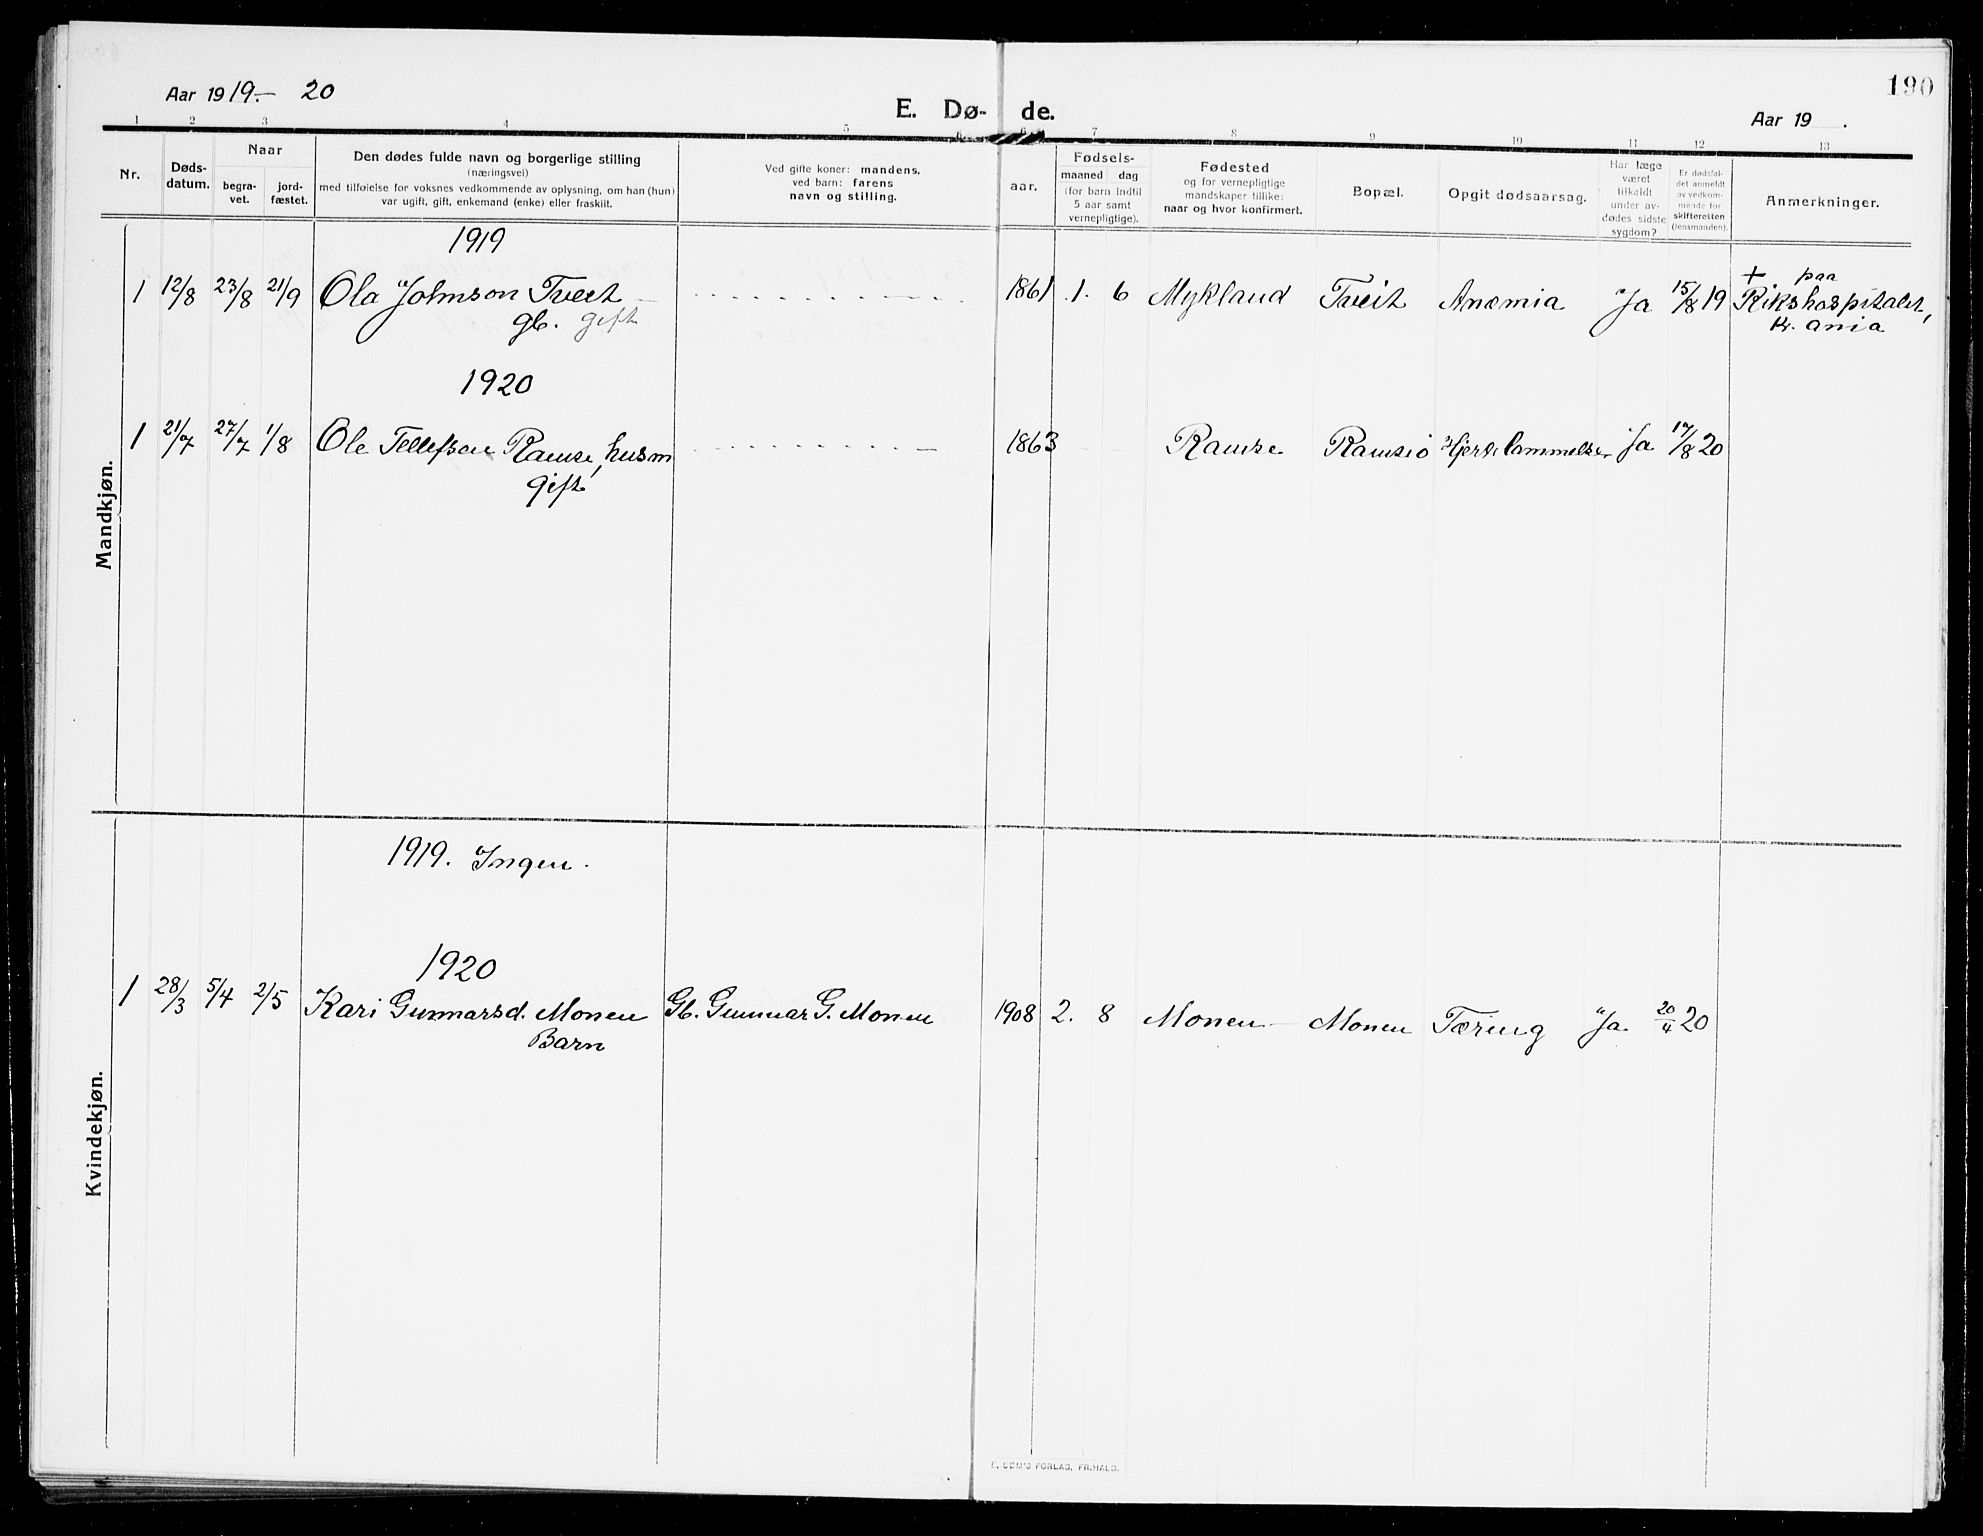 190
Aar 1919.- 20
E. Dø- de.
Aar 19 .
1 2 3 4 5 6 7 8 9 10 11 12 13
Nr.
Døds-
datum.
Naar
begra-
vet.
jord-
fæstet.
Den dødes fulde navn og borgerlige stilling
(næringsvei)
med tilføielse for voksnes vedkommende av oplysning, om han (hun)
var ugift, gift, enkemand (enke) eller fraskilt.
Ved gifte koner: mandens,
ved barn: farens
navn og stilling.
aar.
Fødsels-
maaned dag
(for barn indtil
5 aar samt
vernepligtige).
Fødested
og for vernepligtige
mandskaper tillike:
naar og hvor konfirmert.
Bopæl.
Opgit dødsaarsag.
Har læge
været
tilkaldt
under av-
dødes sidste
sygdom?
Er dødsfal-
det anmeldt
av vedkom-
mende for
skifteretten
(lensmanden).
Anmerkninger.
Mandkjøn.
1919
1 12/8 23/8 21/9 Ola Johnson Tveit 1861 1. 6 Mykland Tveit Anæmia Ja 15/8 19 + paa
gb. gift
Rikshospitalet,
Kr.ania
1920
1 21/7 27/7 1/8 Ole Tellefsen Ramse, husm 1863 Ramse Ramse Hjertelammelse. Ja 17/8 20
gift
Kvindekjøn.
1919. Ingen.
1920
1 28/3 5/4 2/5 Kari Gunnarsd. Monen Gb. Gunnar G. Monen 1908 2. 8 Monen Monen Tæring Ja. 20/4 20
Barn
E. SEM'S FORLAG, FR.HALD.